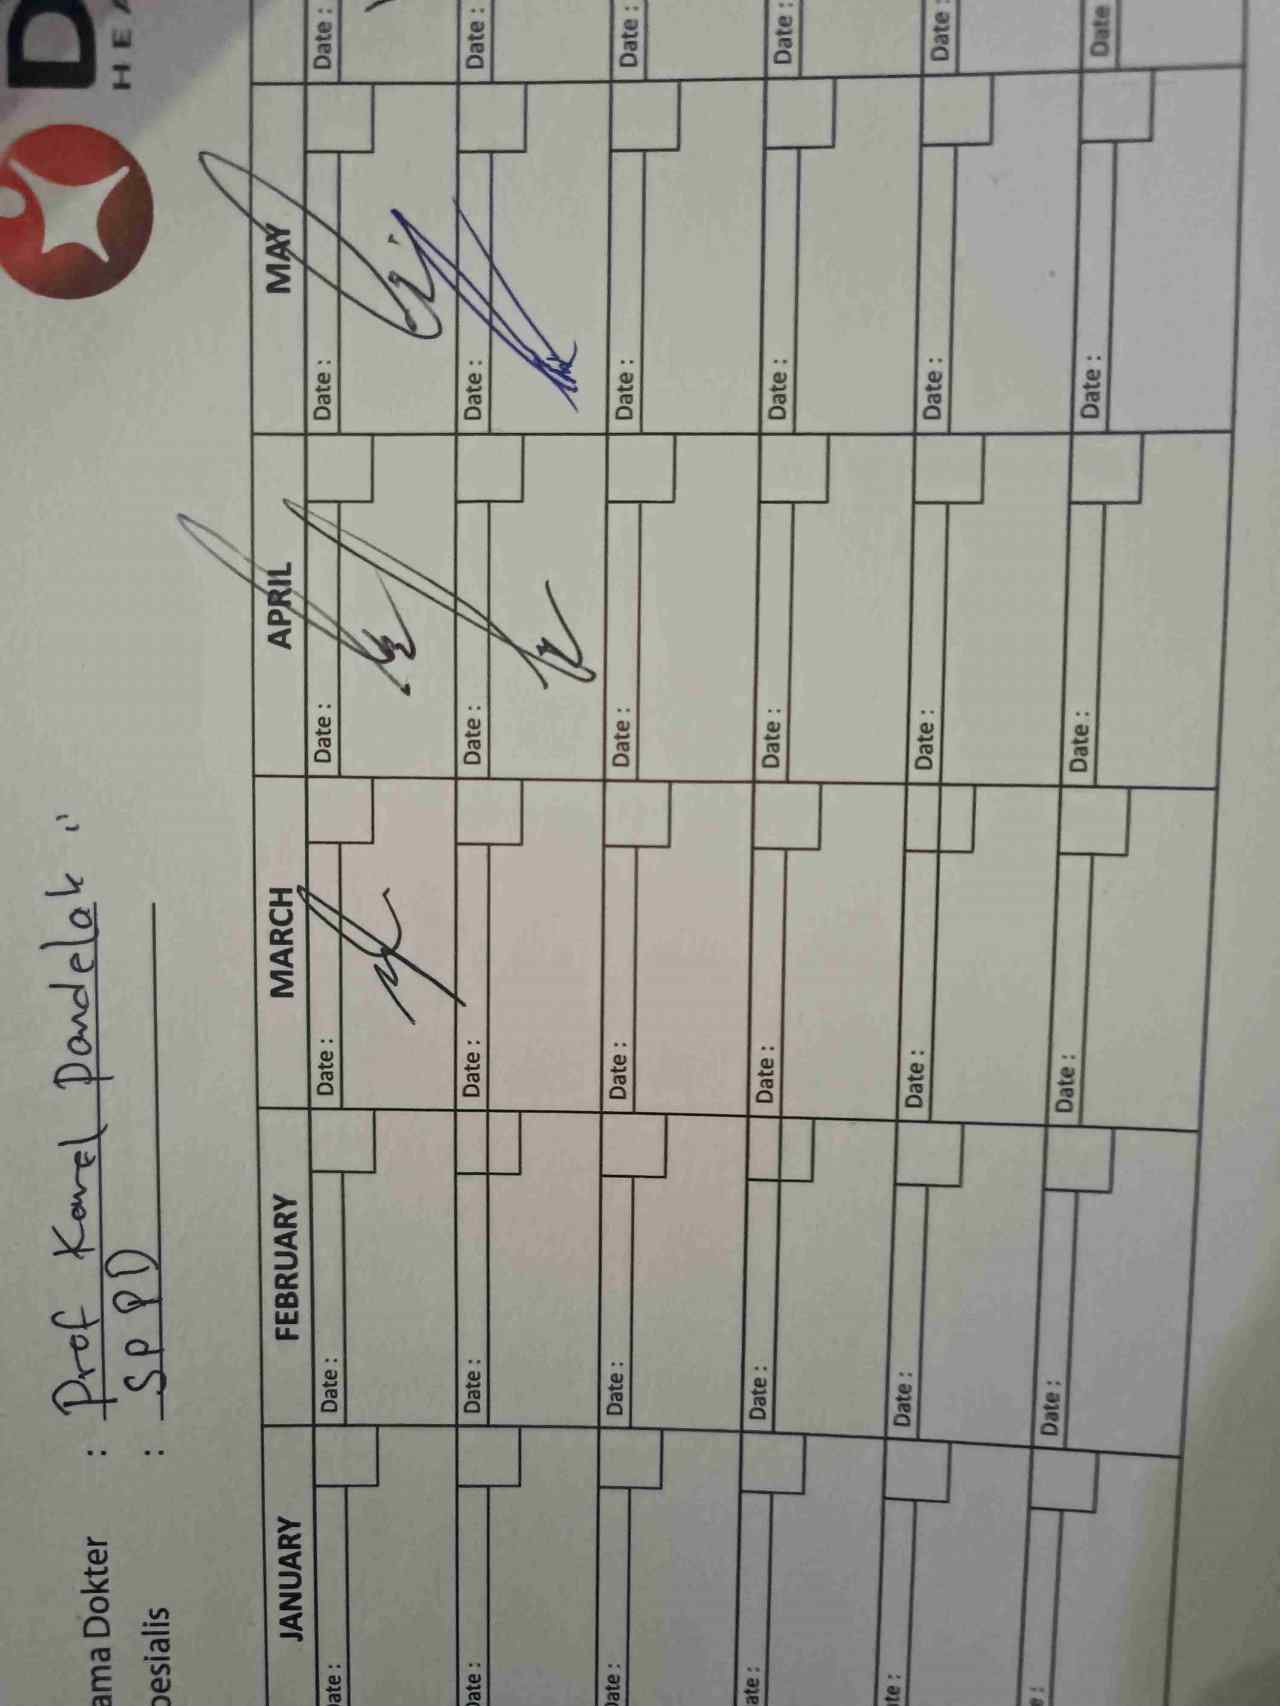 D
HEA
ama Dokter : Prof Karel Pandelaki
pesialis : SP PD
JANUARY FEBRUARY MARCH APRIL MAY
ate : Date : Date : Date : Date : Date :
ate : Date : Date : Date : Date : Date :
Date : Date : Date : Date : Date :
ate : Date : Date : Date : Date : Date :
te : Date : Date : Date : Date : Date :
e : Date : Date : Date : Date : Date